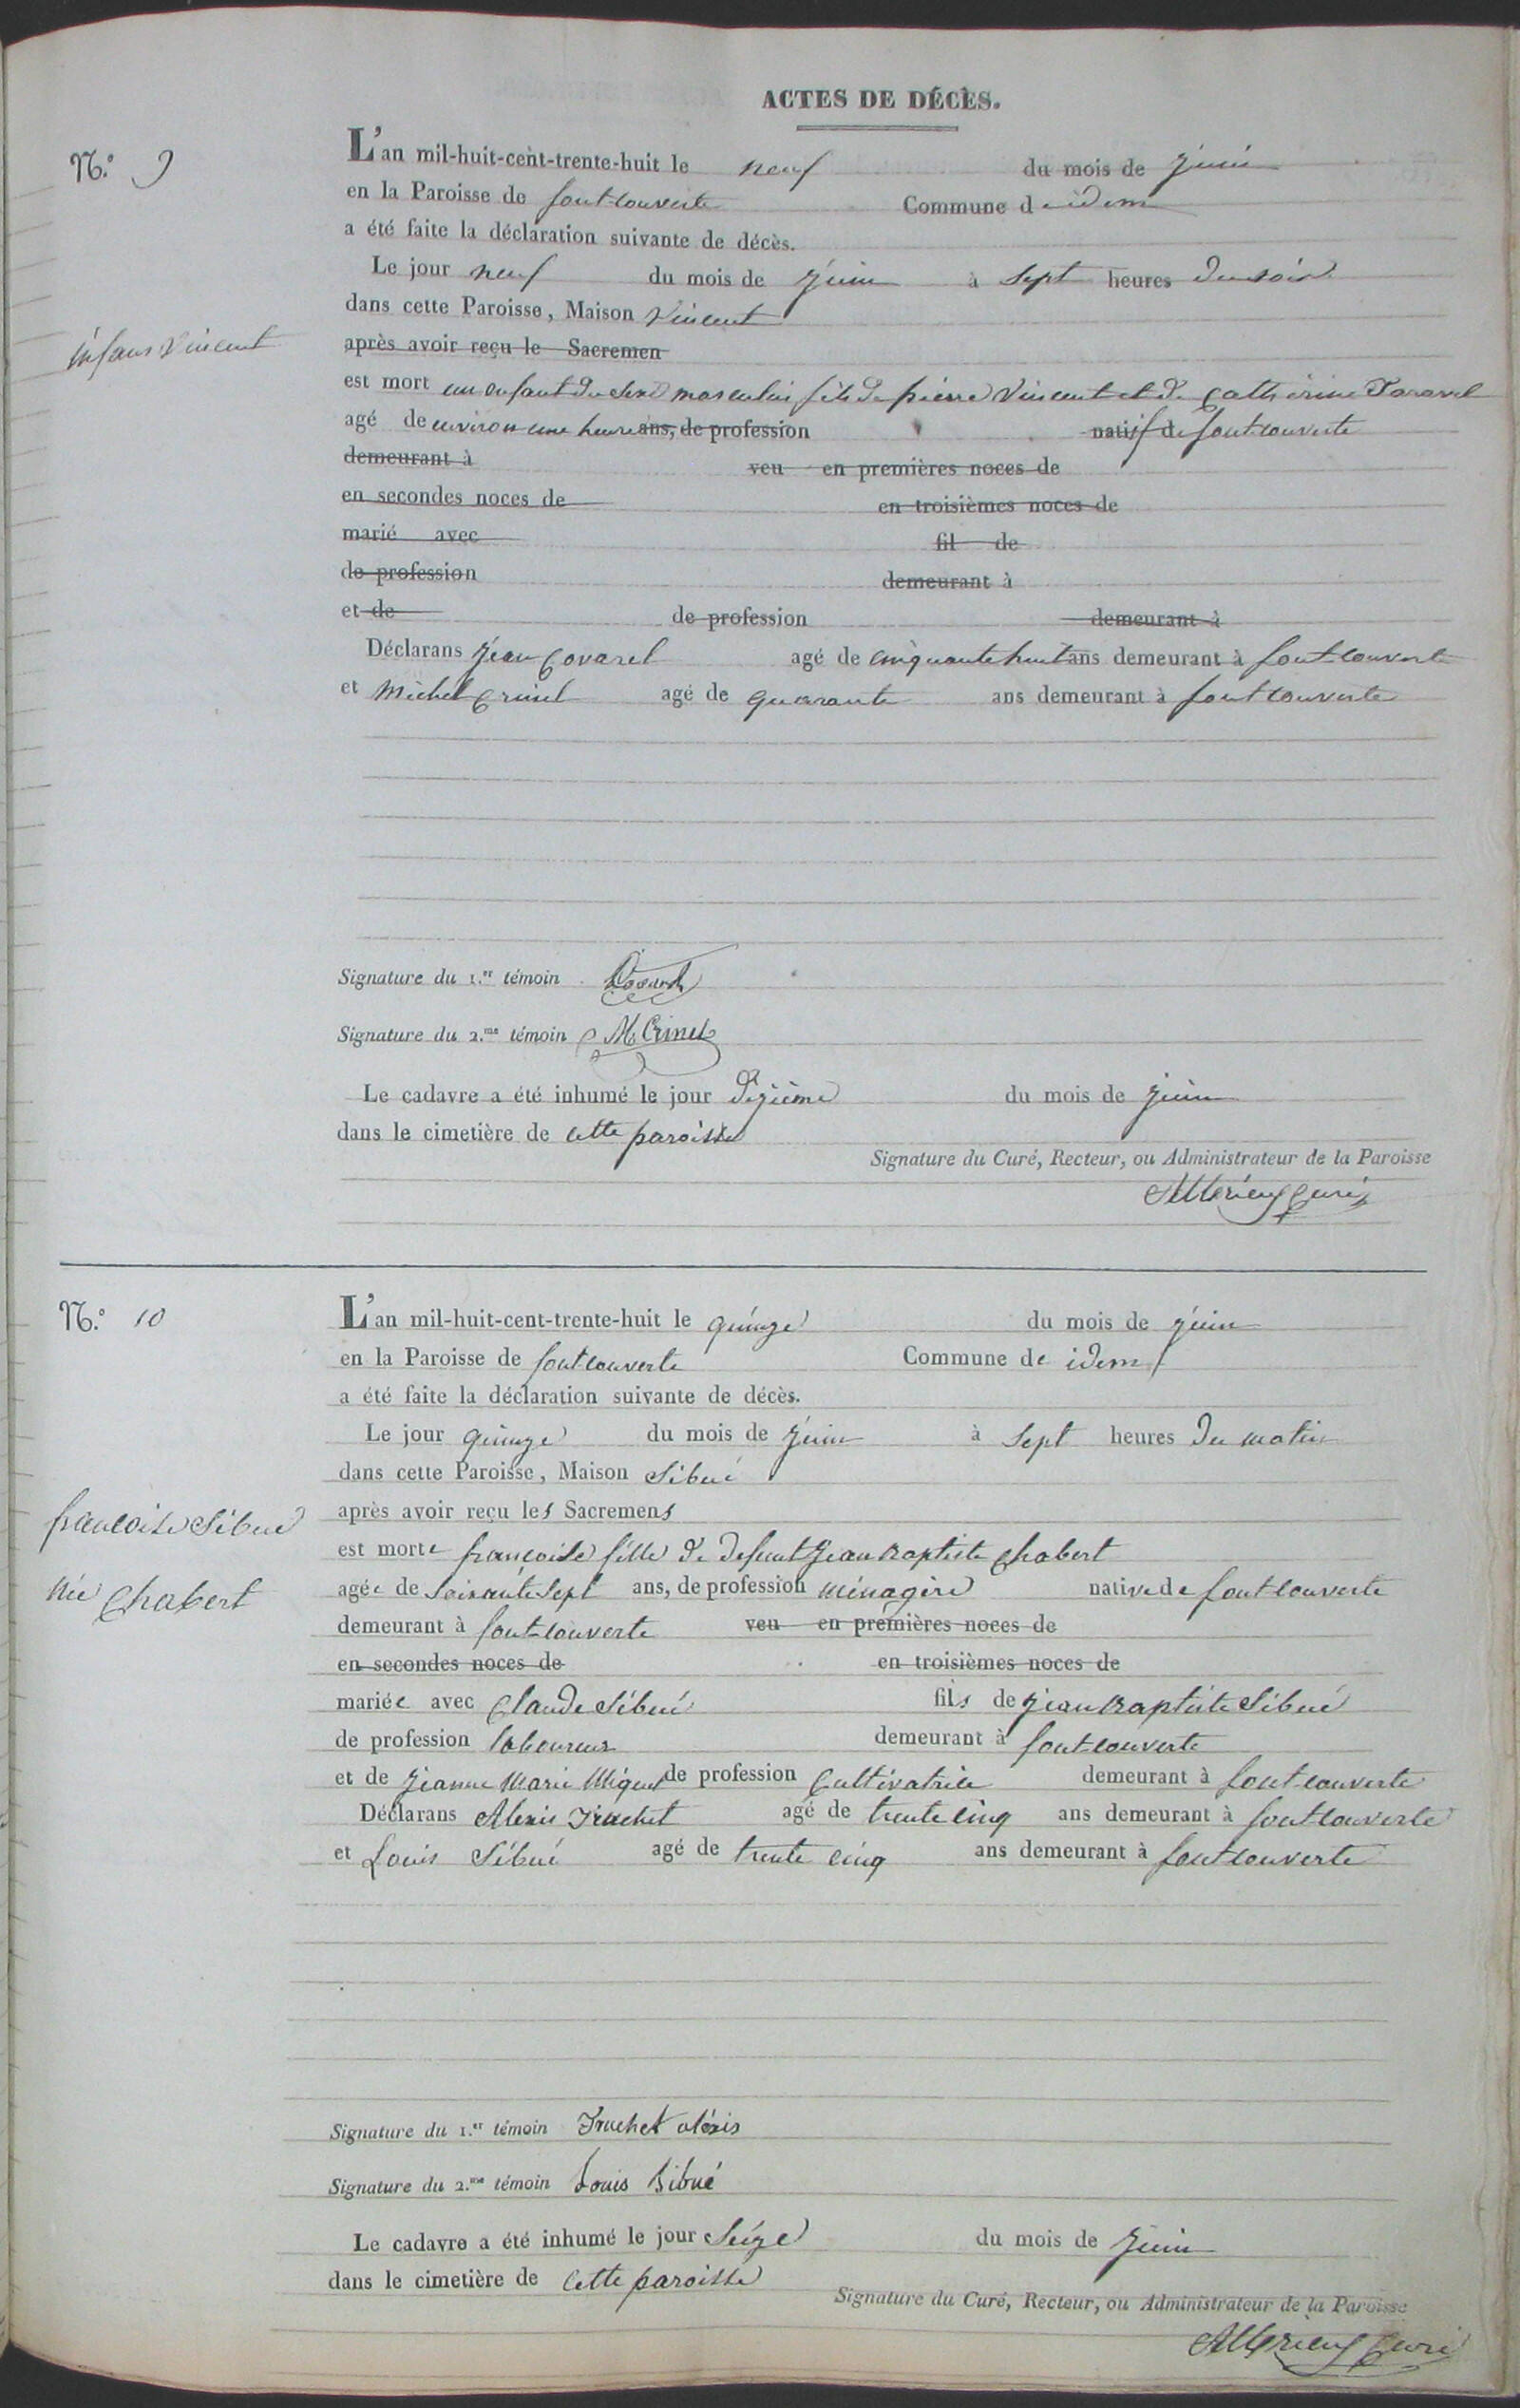 ACTES DE DÉCÈS.
N.° 9
L'an mil-huit-cent-trente-huit le neuf du mois de juin
en la Paroisse de fontcouverte Commune d idem
a été faite la déclaration suivante de décès.
Le jour neuf du mois de juin à sept heures du soir
dans cette Paroisse, Maison Vincent
infans Vincent
après avoir reçu le Sacremen
est mort un enfant du sexe masculin fils de pierre Vincent et de Catherine
agé de environ une heure ans, de profession natif de fontcouverte
demeurant à veu en premières noces de
en secondes noces de en troisièmes noces de
marié avec fil de
de profession demeurant à
et de de profession demeurant à
Déclarans Jean Covarel agé de cinquante huit ans demeurant à fontcouverte
et Michel Crinel agé de quarante ans demeurant à fontcouverte
Signature du 1.er témoin
Signature du 2.me témoin M. Crinel
Le cadavre a été inhumé le jour dizième du mois de juin
dans le cimetière de cette paroisse
Signature du Curé, Recteur, ou Administrateur de la Paroisse
curé
N.° 10
L'an mil-huit-cent-trente-huit le quinze du mois de juin
en la Paroisse de fontcouverte Commune de idem
a été faite la déclaration suivante de décès.
Le jour quinze du mois de juin à sept heures du matin
dans cette Paroisse, Maison Sibué
francoise Sibué
après avoir reçu les Sacremens
est morte francoise fille de defunt Jean Baptiste Chabert
née Chabert
agée de soixante sept ans, de profession ménagère native de fontcouverte
demeurant à fontcouverte veu en premières noces de
en secondes noces de en troisièmes noces de
mariée avec Claude Sibué fils de Jean Baptiste Sibué
de profession laboureur demeurant à fontcouverte
et de Jeanne Marie de profession Cultivatrice demeurant à fontcouverte
Déclarans Alexis Truchet agé de trente cinq ans demeurant à fontcouverte
et Louis Sibué agé de trente cinq ans demeurant à fontcouverte
Signature du 1.er témoin Truchet aléxis
Signature du 2.me témoin Louis Sibué
Le cadavre a été inhumé le jour Seize du mois de juin
dans le cimetière de cette paroisse
Signature du Curé, Recteur, ou Administrateur de la Paroisse
curé